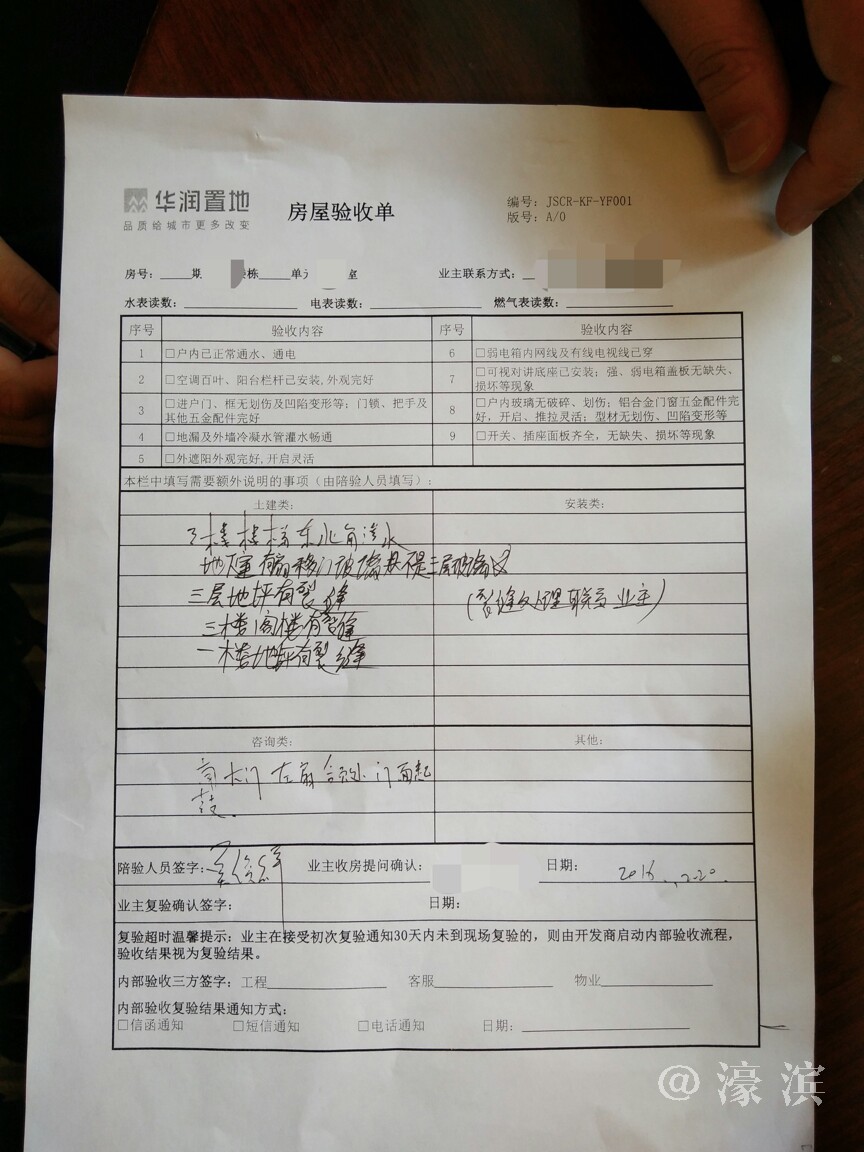 华润置地
品质给城市更多改变
房屋验收单
编号: JSCR-KF-YF001
版号: A/0
房号: 期 栋 单元 室 业主联系方式:
水表读数: 电表读数: 燃气表读数:
序号 验收内容 序号 验收内容
1 □户内已正常通水、通电 6 □弱电箱内网线及有线电视线已穿
2 □空调百叶、阳台栏杆已安装,外观完好 7 □可视对讲底座已安装;强、弱电箱盖板无缺失、
损坏等现象
3 □进户门、框无划伤及凹陷变形等;门锁、把手及
其他五金配件完好
8 □户内玻璃无破碎、划伤;铝合金门窗五金配件完
好,开启、推拉灵活;型材无划伤、凹陷变形等
4 □地漏及外墙冷凝水管灌水畅通 9 □开关、插座面板齐全,无缺失、损坏等现象
5 □外遮阳外观完好,开启灵活
本栏中填写需要额外说明的事项(由陪验人员填写):
土建类: 安装类:
3楼楼梯东北角渗水
三层地坪有裂缝
(裂缝处理联系业主)
三楼阁楼有裂缝
一楼地坪有裂缝
咨询类: 其他:
南大门左扇 门面起
鼓.
陪验人员签字: 业主收房提问确认: 日期: 2016
业主复验确认签字: 日期:
复验超时温馨提示:业主在接受初次复验通知30天内未到现场复验的,则由开发商启动内部验收流程,
验收结果视为复验结果。
内部验收三方签字:工程 客服 物业
内部验收复验结果通知方式:
□信函通知 □短信通知 □电话通知 日期:
@濠滨